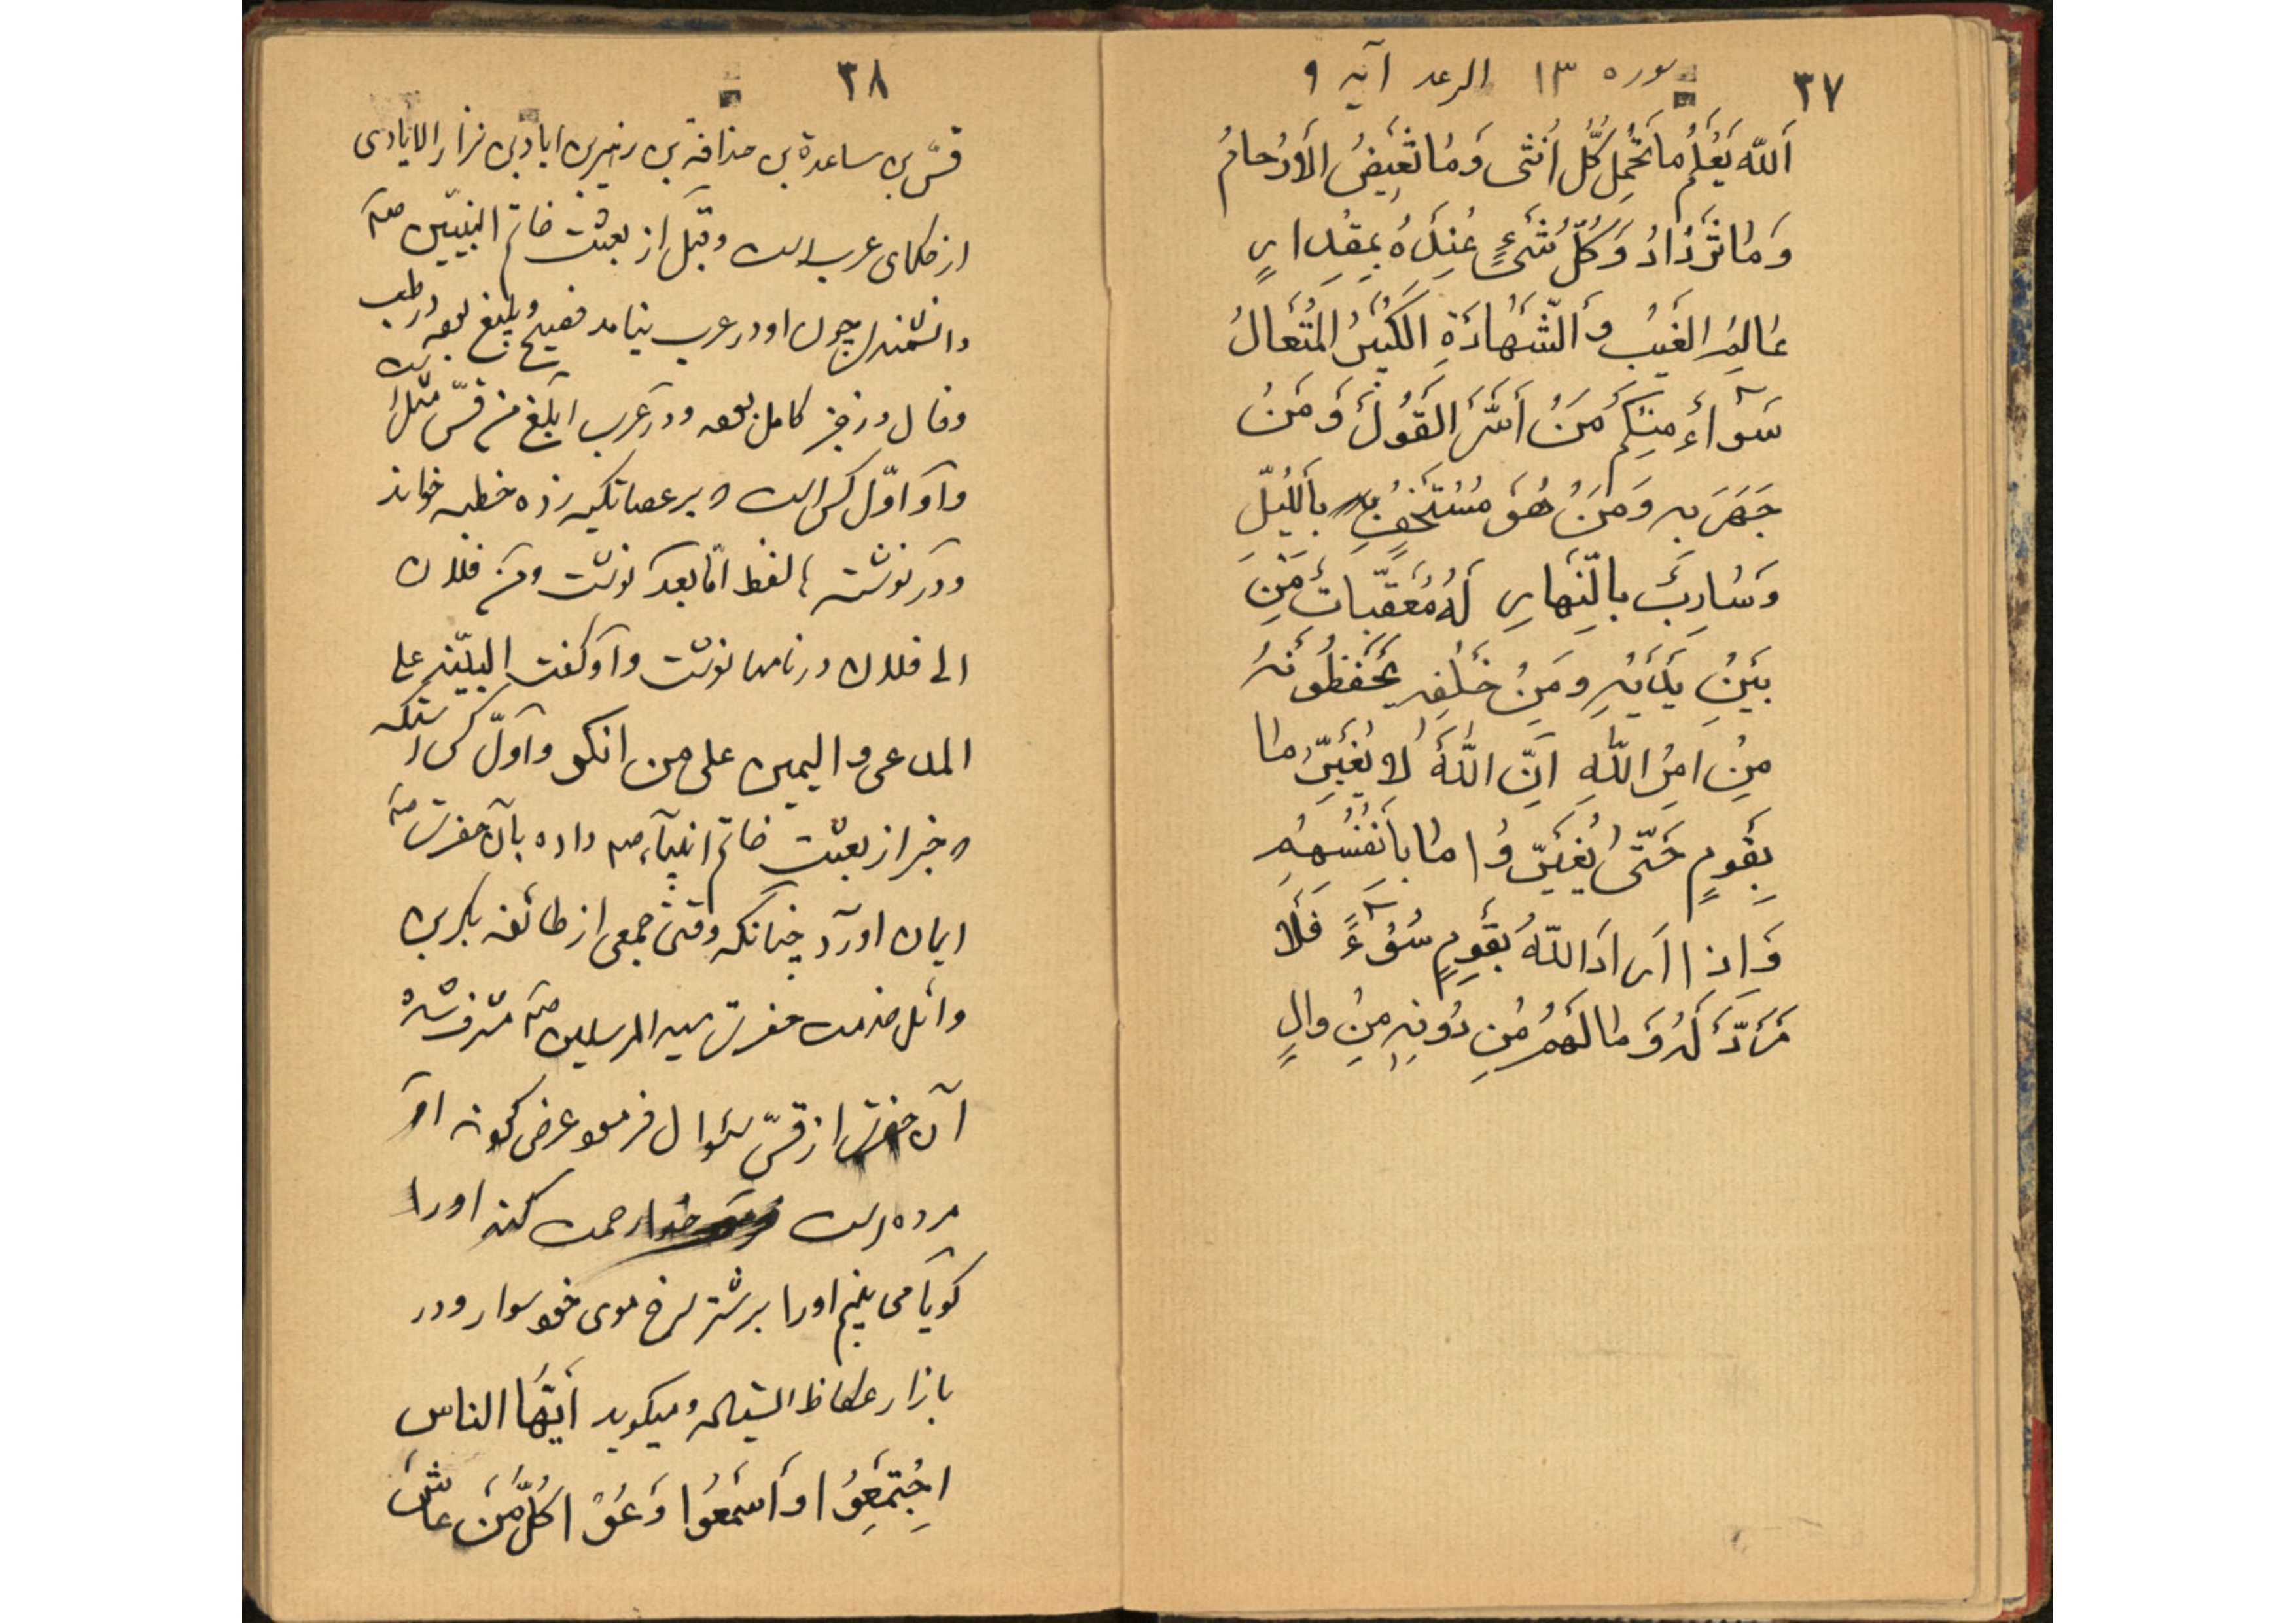 ۳۷
سوره ۱۳ الرعد آیه ۹
أَللّه يَعْلَمُ ما تَحْمِلُ كُلُّ أُنْثى وَمٰا تَغِيضُ الْأَرْحامُ
وَمٰا تَزْدٰادُ وَكُلُّ شَىْءٍ عِنْدَهُ بِمِقْدارٍ
عٰالِمُ الغَيْبِ وَالشَّهٰادَةِ الْكَبيرُ الْمُتَعالُ
سَوآءٌ مِنْكُمْ مَنْ أَسَرَّ القَوْلَ وَمَنْ
جَهَرَ بِهِ وَمَنْ هُوَ مُسْتَخْفٍ بِاللَّيْلِ
وَسٰارِبٌ بِالنَّهارِ لَهُ مُعَقِّباتٌ مِنْ
بَيْنِ يَدَيْهِ وَمِنْ خَلْفِهِ يَحْفَظُونَهُ
مِنْ امْرِ اللّٰهِ اِنَّ اللّٰهَ لا يُغَيِّرُ مٰا
بِقَومٍ حَتّىٰ يُغَيِّرُوا مٰا بِأَنْفُسِهِمْ
وَاِذا اَرادَ اللّهُ بِقَومٍ سُوْءً فَلا
مَرَدَّ لَهُ وَمٰا لَهُمْ مِنْ دُونِهِ مِنْ والٍ
۳۸
قسّ بن ساعدة بن حذافة بن زهیر بن ایاد بن نزار الایادی
از حکمای عرب است و قبل از بعثت خاتم النبیّین صلم
دانشمندی چون او در عرب نیامد فصیح و بلیغ بوده در طب
وفال و زجر کامل بوده و در عرب ابلغ من قسّ مثل است
و او اوّل کس است که بر عصا تکیه زده خطبه خواند
و در نوشته ها لفظ امّا بعد نوشت و من فلان
الی فلان در نامها نوشت و او گفت البیّنه علی
المدعی و الیمین علی من انکر و اوّل کس استکه
که خبر از بعثت خاتم انبیآء صلم داده بآن حضرت صلم
ایمان اورد چنانکه وقتی جمعی از طائفه بکر بن
وائل خدمت حضرت سید المرسلین صلم مشرف شدند
آن حضرت از قسّ سئوال فرمود عرض کردند او
مرده است خدا رحمت کند اورا
گویا می بینم اورا بر شتر سرخ موی خود سوار و در
بازار عکاظ ایستاده و میگوید أَيّهَا الناس
اجْتَمِعُوا وَاسْمَعُوا وَعُوْا كُلُّ مَنْ عاشَ